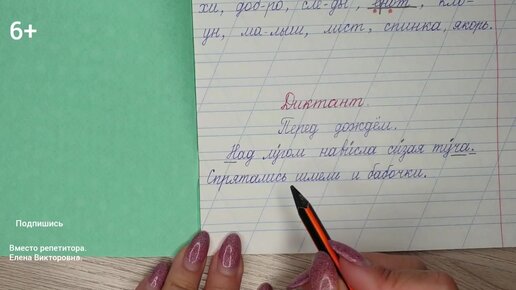 6+
хи, доб-ро, сле-ды, грот, кло-
ун, ма-лыш, лист, спинка, якорь.
Диктант.
Перед дождём.
Над лугом нависла сизая туча.
Спрятались шмели и бабочки.
Подпишись
Вместо репетитора.
Елена Викторовна.